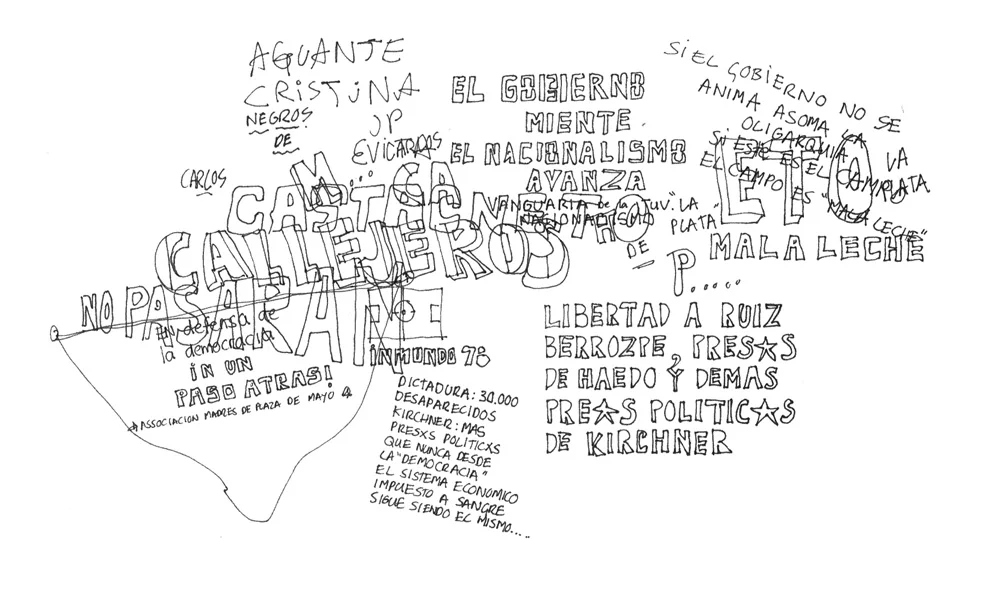 AGUANTE
CRISTINA
JP
EVICARDOS
NEGROS
DE
M...
CARLOS
CASTAGNETTO
CALLEJEROS
NO PASARAN
EN defensa de
la democracia
iN UN
PASO ATRAS!
ASSOCIACION MADRES DE PLAZA DE MAYO
INMUNDO 78
DICTADURA: 30.000
DESAPARECIDOS
KIRCHNER: MAS
PRESXS POLITICXS
QUE NUNCA DESDE
LA "DEMOCRACIA"
EL SISTEMA ECONOMICO
IMPUESTO A SANGRE
SIGUE SIENDO EL MISMO....
EL GOBIERNO
MIENTE
EL NACIONALISMO
AVANZA
VANGUARIA de la JUV.
NACIONALISMO
"LA
PLATA"
DE
P.....
SI EL GOBIERNO NO SE
ANIMA ASOMA LA
OLIGARQUIA
SI ESTE ES EL CAMPO
EL CAMPO ES "MALA LECHE"
LA
PLATA
MALA LECHE
LIBERTAD A RUIZ
BERROZPE, PRES★S
DE HAEDO Y DEMAS
PRE★S POLITIC★S
DE KIRCHNER